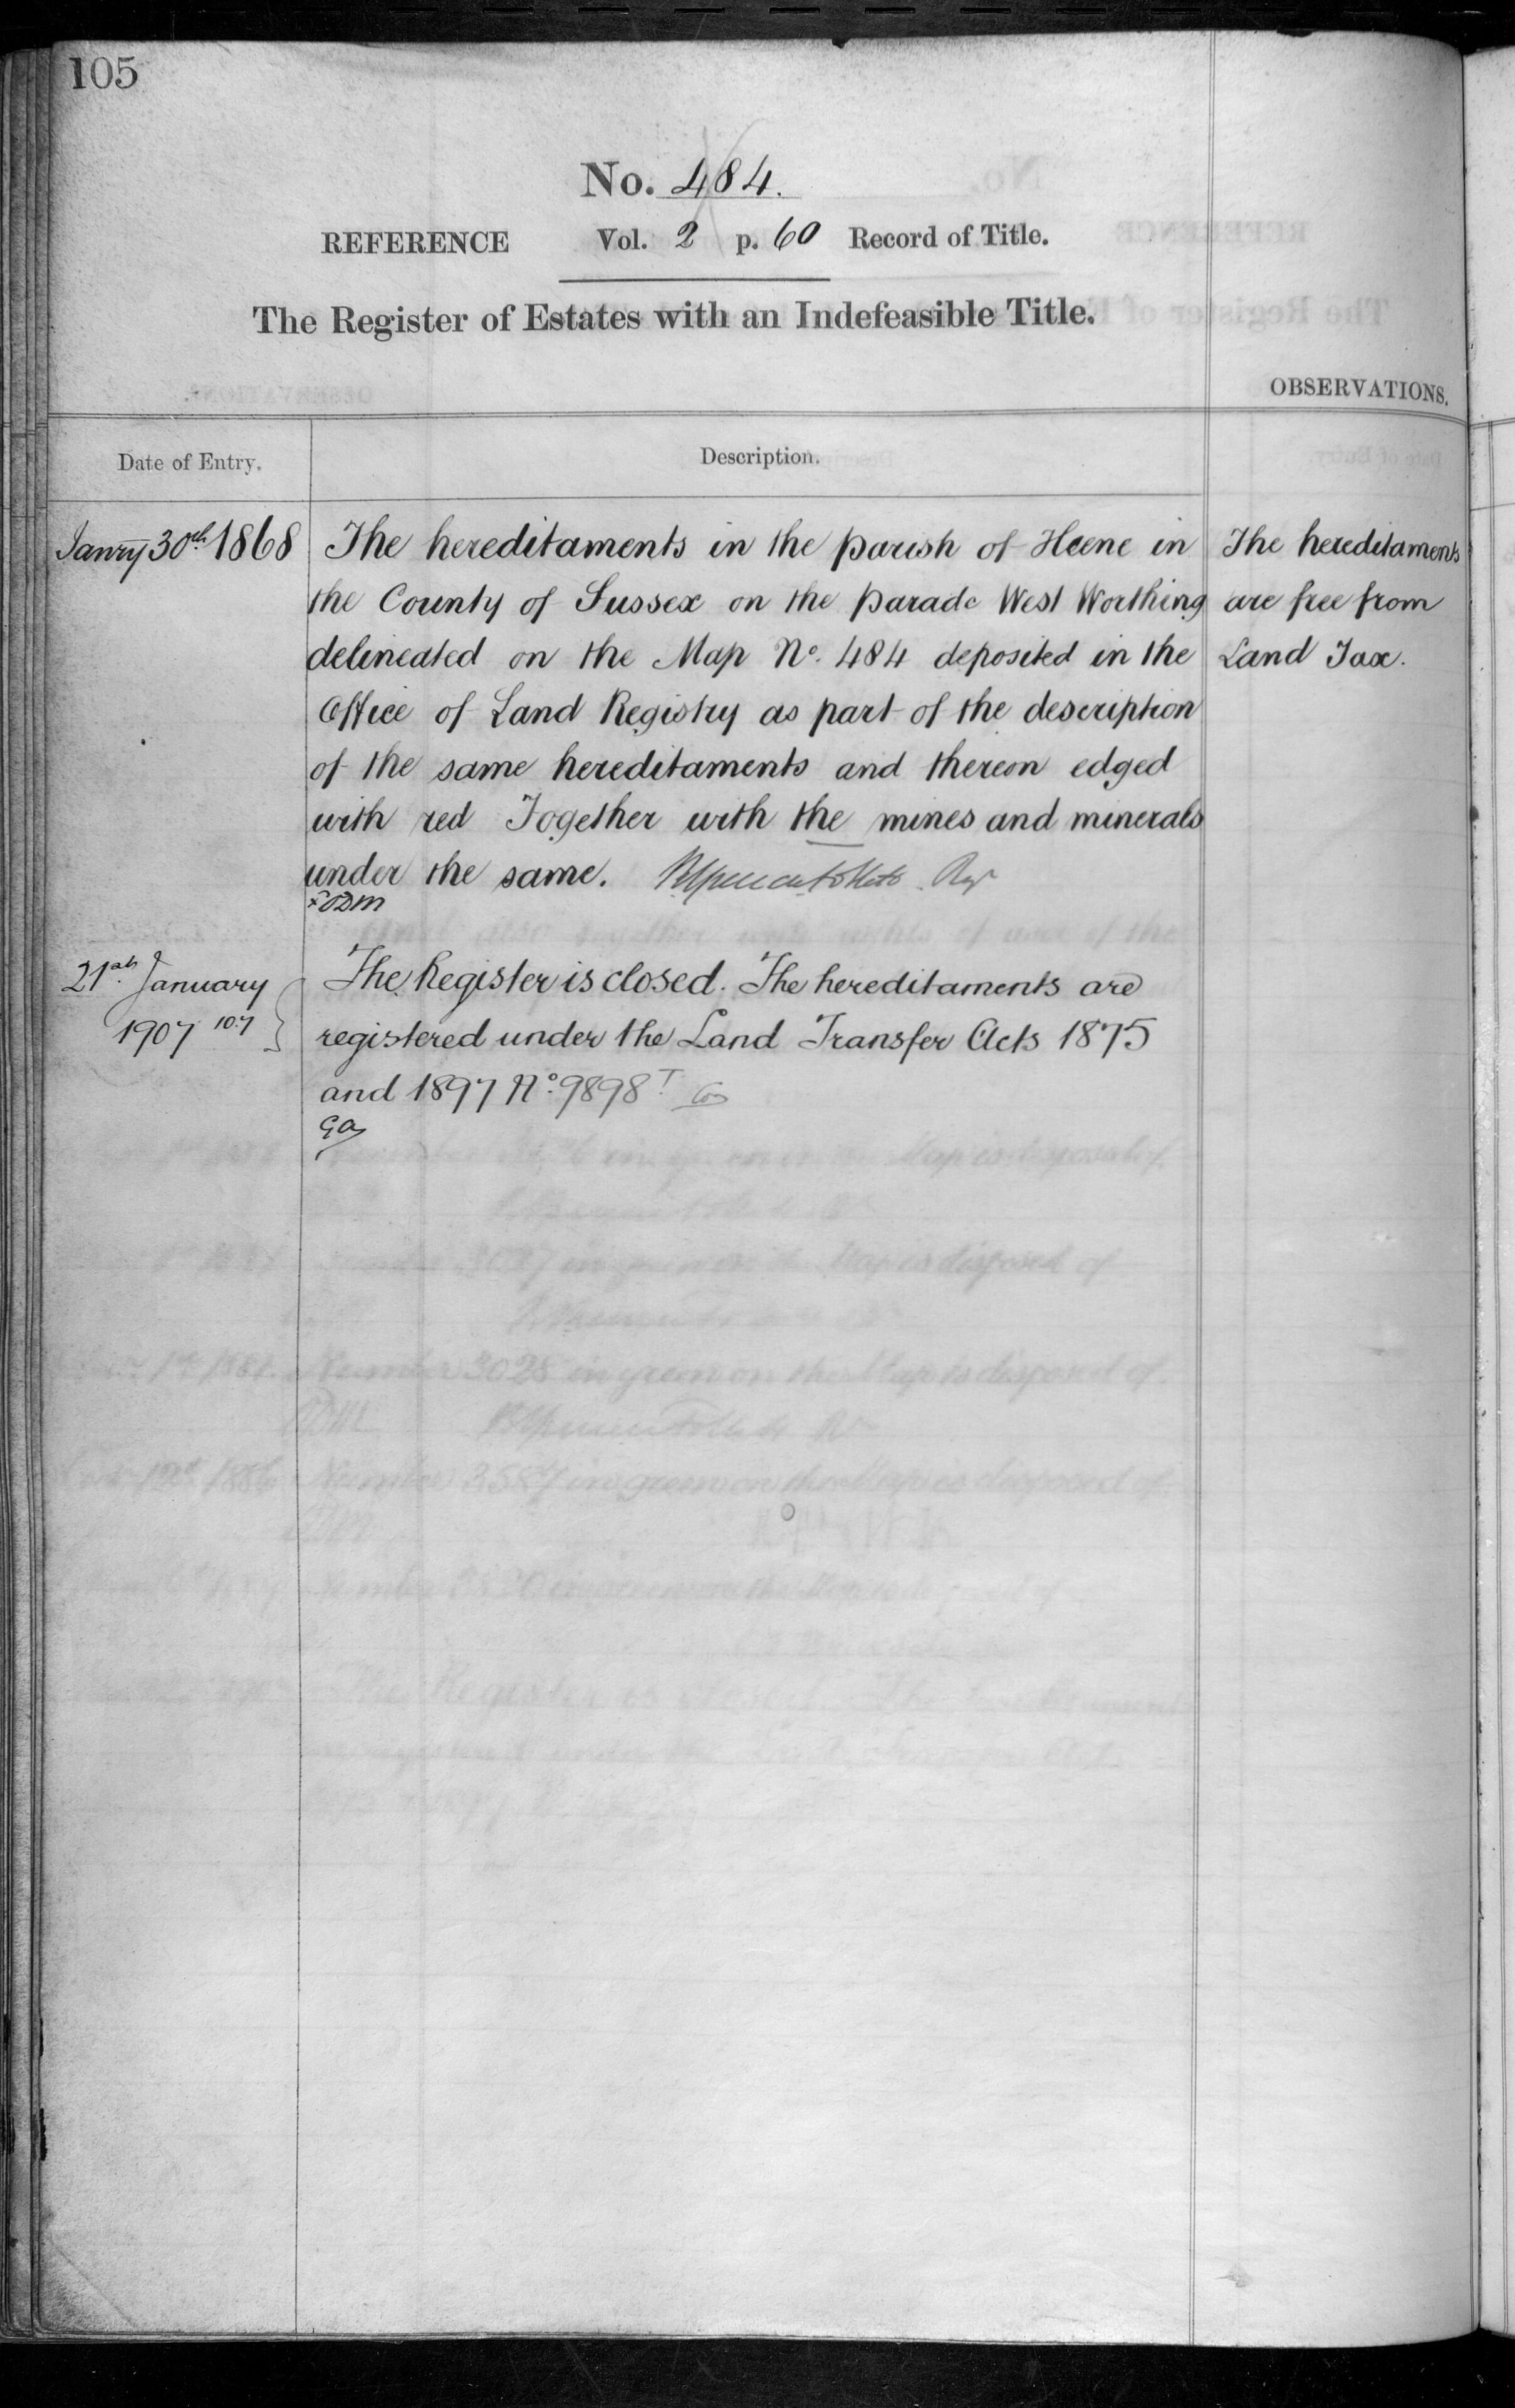 105
No. 484.
REFERENCE Vol. 2 p. 60 Record of Title.
The Register of Estates with an Indefeasible Title.
OBSERVATIONS.
Date of Entry.
Description.
Janry 30th 1868
The hereditaments in the parish of Heene in
the County of Sussex on the parade West Worthing
delineated on the Map No. 484 deposited in the
Office of Land Registry as part of the description
of the same hereditaments and thereon edged
with red Together with the mines and minerals
under the same.
The hereditaments
are free from
Land Tax.
21st January
1907 10.7
The Register is closed. The hereditaments are
registered under the Land Transfer Acts 1875
and 1897 No. 9898 T